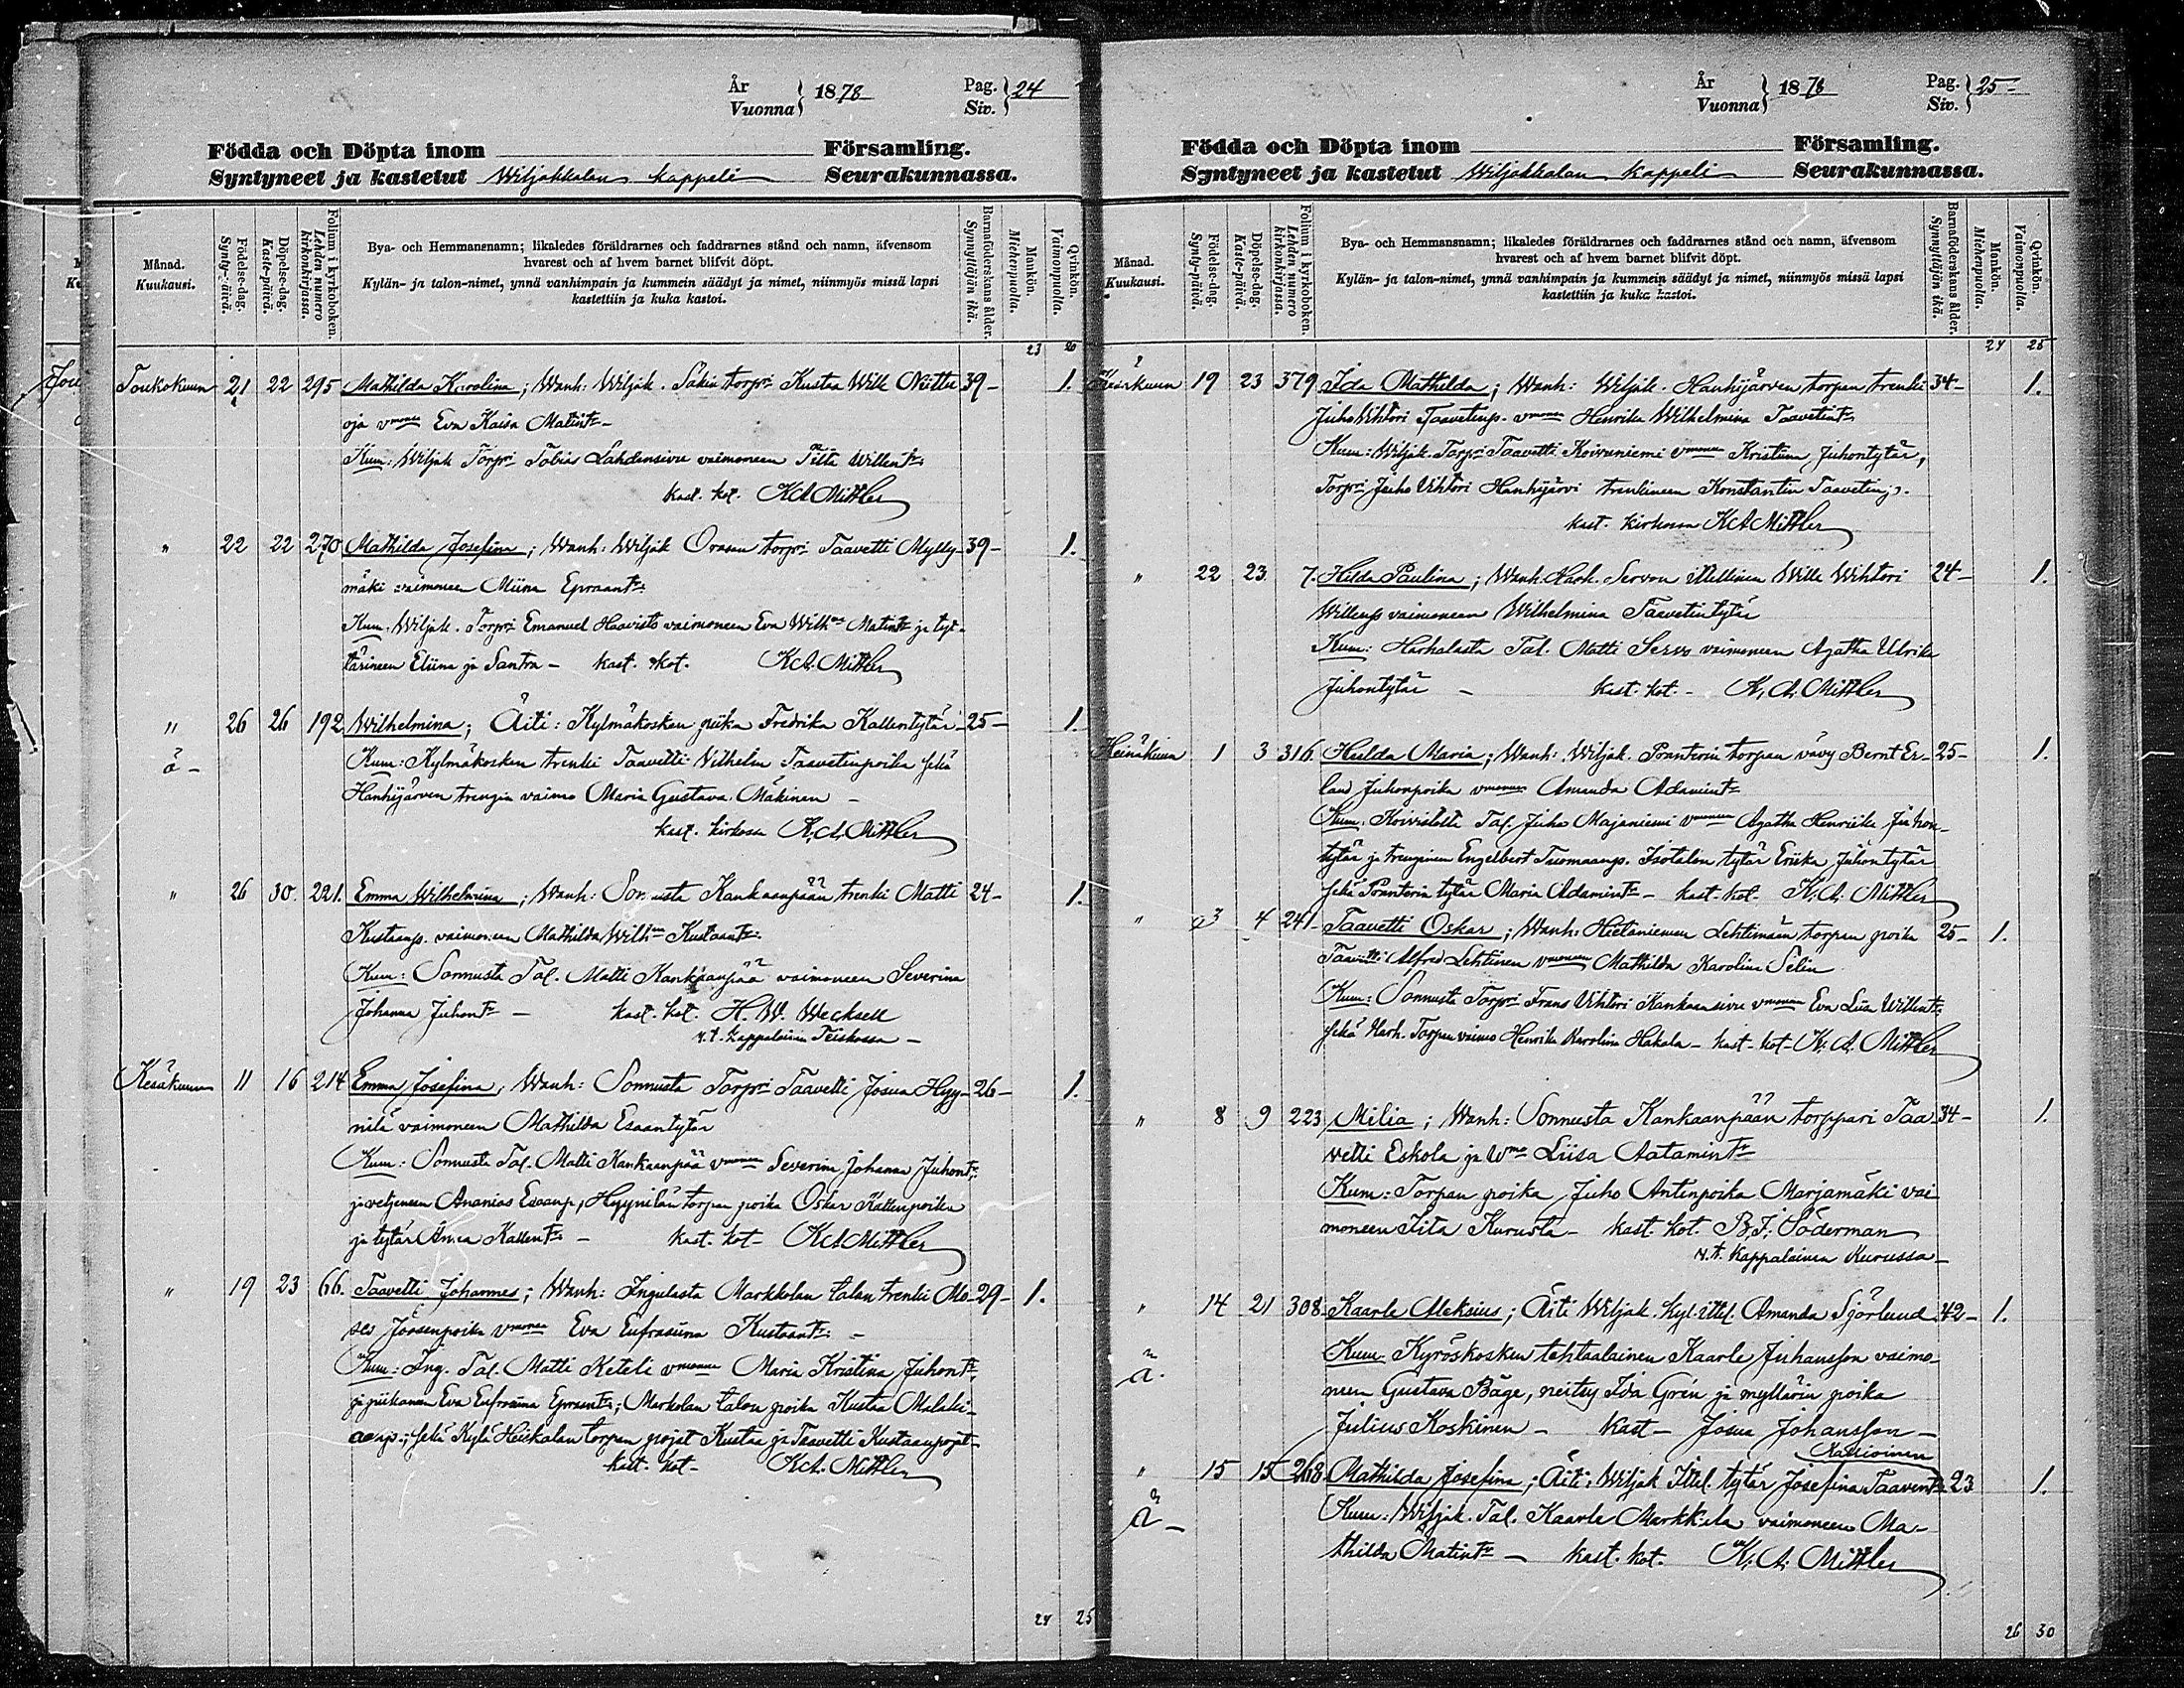 År Vuonna } 1878 Pag. Siv. } 24
Födda och Döpta inom Församling.
Syntyneet ja kastetut Wiljakkalan kappeli Seurakunnassa.
Månad. Kuukausi.
Födelse-dag. Synty-päivä.
Döpelse-dag. Kaste-päivä.
Folium i kyrkoboken. Lehden numero kirkonkirjassa.
Bya- och Hemmansnamn; likaledes föräldrarnes och faddrarnes stånd och namn, äfvensom
hvarest och af hvem barnet blifvit döpt.
Kylän- ja talon-nimet, ynnä vanhimpain ja kummein säädyt ja nimet, niinmyös missä lapsi
kastettiin ja kuka kastoi.
Barnaföderskans ålder. Synnyttäjän ikä.
Mankön. Miehenpuolta.
Qvinkön. Vaimonpuolta.
23 20
Toukokuun 21 22 295 Mathilda Karolina; Wanh: Wiljak. Sakin torpri Kustaa Wille Niittu 39- 1.
oja vmonen Eva Kaisa Matintr-
Kum: Wiljak Torpri Tobias Lahdensivu vaimoneen Iita Willentr
kast. kot. K A Mittler
" 22 22 270 Mathilda Josefina; Wanh: Wiljak Orasen torpri Taavetti Mylly- 39- 1.
mäki vaimoneen Miina Epraantr
Kum. Wiljak. Torpri Emanuel Haavisto vaimoneen Eva Wilhna Matintr ja tyt-
tärineen Eliina ja Santra - kast. kot. K A. Mittler
" 26 26 192 Wilhelmina; Äiti: Kylmäkosken piika Fredrika Kallentytär- 25- 1.
ä- Kum: Kylmäkosken trenki Taavetti Vilhelm Taavetinpoika sekä
Hanhijärven trengin vaimo Maria Gustava Mäkinen -
kast. kirkossa K. A. Mittler
" 26 30. 221. Emma Wilhelmina; Wanh: Sonnusta Kankaanpään trenki Matti 24- 1.
Kustaanp. vaimoneen Mathilda Wilhna Kustaantr
Kum: Sonnusta Tal. Matti Kankaanpää vaimoneen Severina
Johanna Juhontr - kast. kot. H. W. Wecksell
v. t. kappalainen Teiskossa -
Kesäkuun 11 16 214 Emma Josefina, Wanh: Sonnusta Torpri Taavetti Josua Hyy- 26- 1.
nilä vaimoneen Mathilda Esaantytär
Kum: Sonnusta Tal. Matti Kankaanpää vmonen Severina Johanna Juhontr
ja veljineen Ananias Esaanp, Hyynilän torpan poika Oskar Kallenpoika
ja tytär Anna Kallentr - kast. kot- K A Mittler
" 19 23 66. Taavetti Johannes; Wanh: Inkulasta Markkolan talon trenki Mo- 29- 1.
ses Joosenpoika vmonen Eva Eufrasiina Kustaantr -
Kum: Ing. Tal. Matti Keteli vmonen Maria Kristina Juhontr,
ja piikanen Eva Eufrosina Epraantr; Markolan talon poika Kustaa Malaki-
aanp.; sekä Kylä Heiskalan torpan pojat Kustaa ja Taavetti Kustaanpojat-
kast. kot- K A. Mittler
24 25
År Vuonna } 1878 Pag. Siv. } 25-
Födda och Döpta inom Församling.
Syntyneet ja kastetut Wiljakkalan kappeli Seurakunnassa.
Månad. Kuukausi.
Födelse-dag. Synty-päivä.
Döpelse-dag. Kaste-päivä.
Folium i kyrkoboken. Lehden numero kirkonkirjassa.
Bya- och Hemmansnamn; likaledes föräldrarnes och faddrarnes stånd och namn, äfvensom
hvarest och af hvem barnet blifvit döpt.
Kylän- ja talon-nimet, ynnä vanhimpain ja kummein säädyt ja nimet, niinmyös missä lapsi
kastettiin ja kuka kastoi.
Barnaföderskans ålder. Synnyttäjän ikä.
Mankön. Miehenpuolta.
Qvinkön. Vaimonpuolta.
24 25
Kesäkuun 19 23 379 Ida Mathilda; Wanh: Wiljak. Hanhijärven torpan trenki 34- 1.
Juho Vihtori Taavetinp. vmonen Henrika Wilhelmina Taavetintr
Kum: Wiljak. Torpri Taavetti Koivuniemi vmonen Kristiina Juhontytär,
Torpri Juho Vihtori Hanhijärvi trenkineen Konstantin Taavetinp.
kast. kirkossa K A Mittler
" 22 23 7. Hilda Paulina; Wanh. Hark. Servon itsellinen Wille Wihtori 24- 1.
Willenp vaimoneen Wilhelmina Taavetintytär
Kum: Harhalasta Tal. Matti Servo vaimoneen Agatha Ulrika
Juhontytär - kast. kot. - K. A. Mittler
Heinäkuun 1 3 316. Hulda Maria; Wanh: Wiljak. Prantorin torpan vävy Bernt Er- 25- 1.
land Juhonpoika vmonen Amanda Adamintr
Kum. Koivistosta Tal. Juho Majaniemi vmonen Agatha Henrika Juhon-
tytär ja trenginen Engelbert Tuomaanp. Isotalon tytär Eriika Juhontytär
sekä Prantorin tytär Maria Adamintr - kast. kot. K. A. Mittler
" 3 4 241- Taavetti Oskar; Wanh: Hietaniemen Lehtimäin torpan poika 25- 1.
Taavetti Alfred Lehtinen vmonen Mathilda Karolina Selin
Kum: Sonnusta Torpri Frans Vihtori Kankaansivu vmonen Eva Liisa Willentr
sekä Hark. Torpan vaimo Henrika Karolina Hakala - kast. kot- K. A. Mittler
" 8 9 223 Milia; Wanh: Sonnusta Kankaanpään torppari Taa- 34- 1.
vetti Eskola ja Wmo Liisa Aatamintr
Kum: Torpan poika Juho Antinpoika Marjamäki vai-
moneen Iita Kurusta - kast. kot. B. F. Söderman
v. t. Kappalainen Kurussa-
" 14 21 308 Kaarle Aleksius; Äiti Wiljak. kyl. ittel. Amanda Sjörlund 42- 1.
ä. Kum. Kyröskosken tehtaalainen Kaarle Juhansson vaimo-
neen Gustava Båge, neitsy Ida Grén ja myllärin poika
Julius Koskinen - kast - Josua Johansson -
" 15 15 268 Mathilda Josefina; Äiti: Wiljak Ittel. tytär Josefina Taaventr 23 1.
ä- Kum: Wiljak. Tal. Kaarle Markkula vaimoneen Ma-
thilda Matintr - kast. kot. K. A. Mittler
26 30